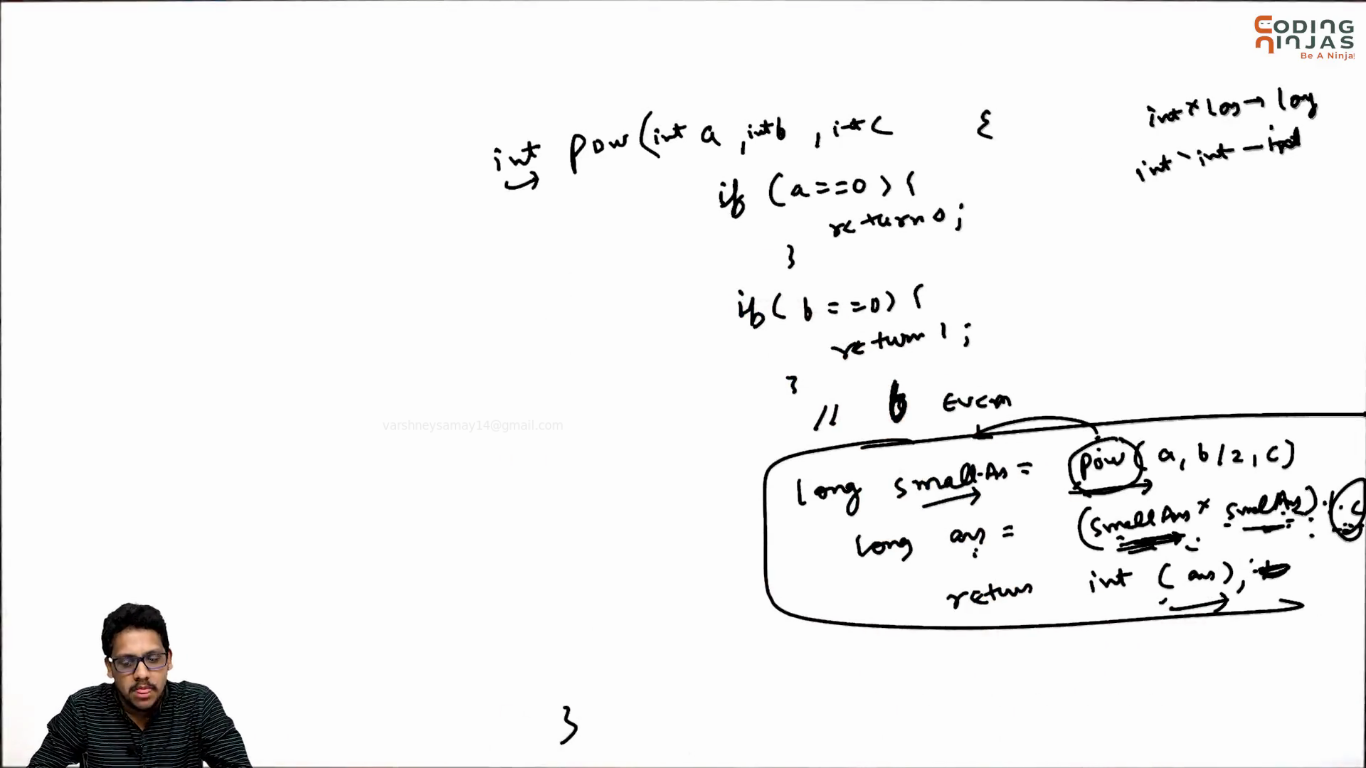 CODING
NINJAS
Be A Ninja
int * long → long
int * int - int
int pow(int a, int b, int c {
if (a==0) {
return 0;
}
if( b ==0) {
return 1;
}
// b even
long smallAs = pow( a, b/2, c)
long ans = (smallAns * smallAns) % c
return int (ans);
}
varshneysamay14@gmail.com